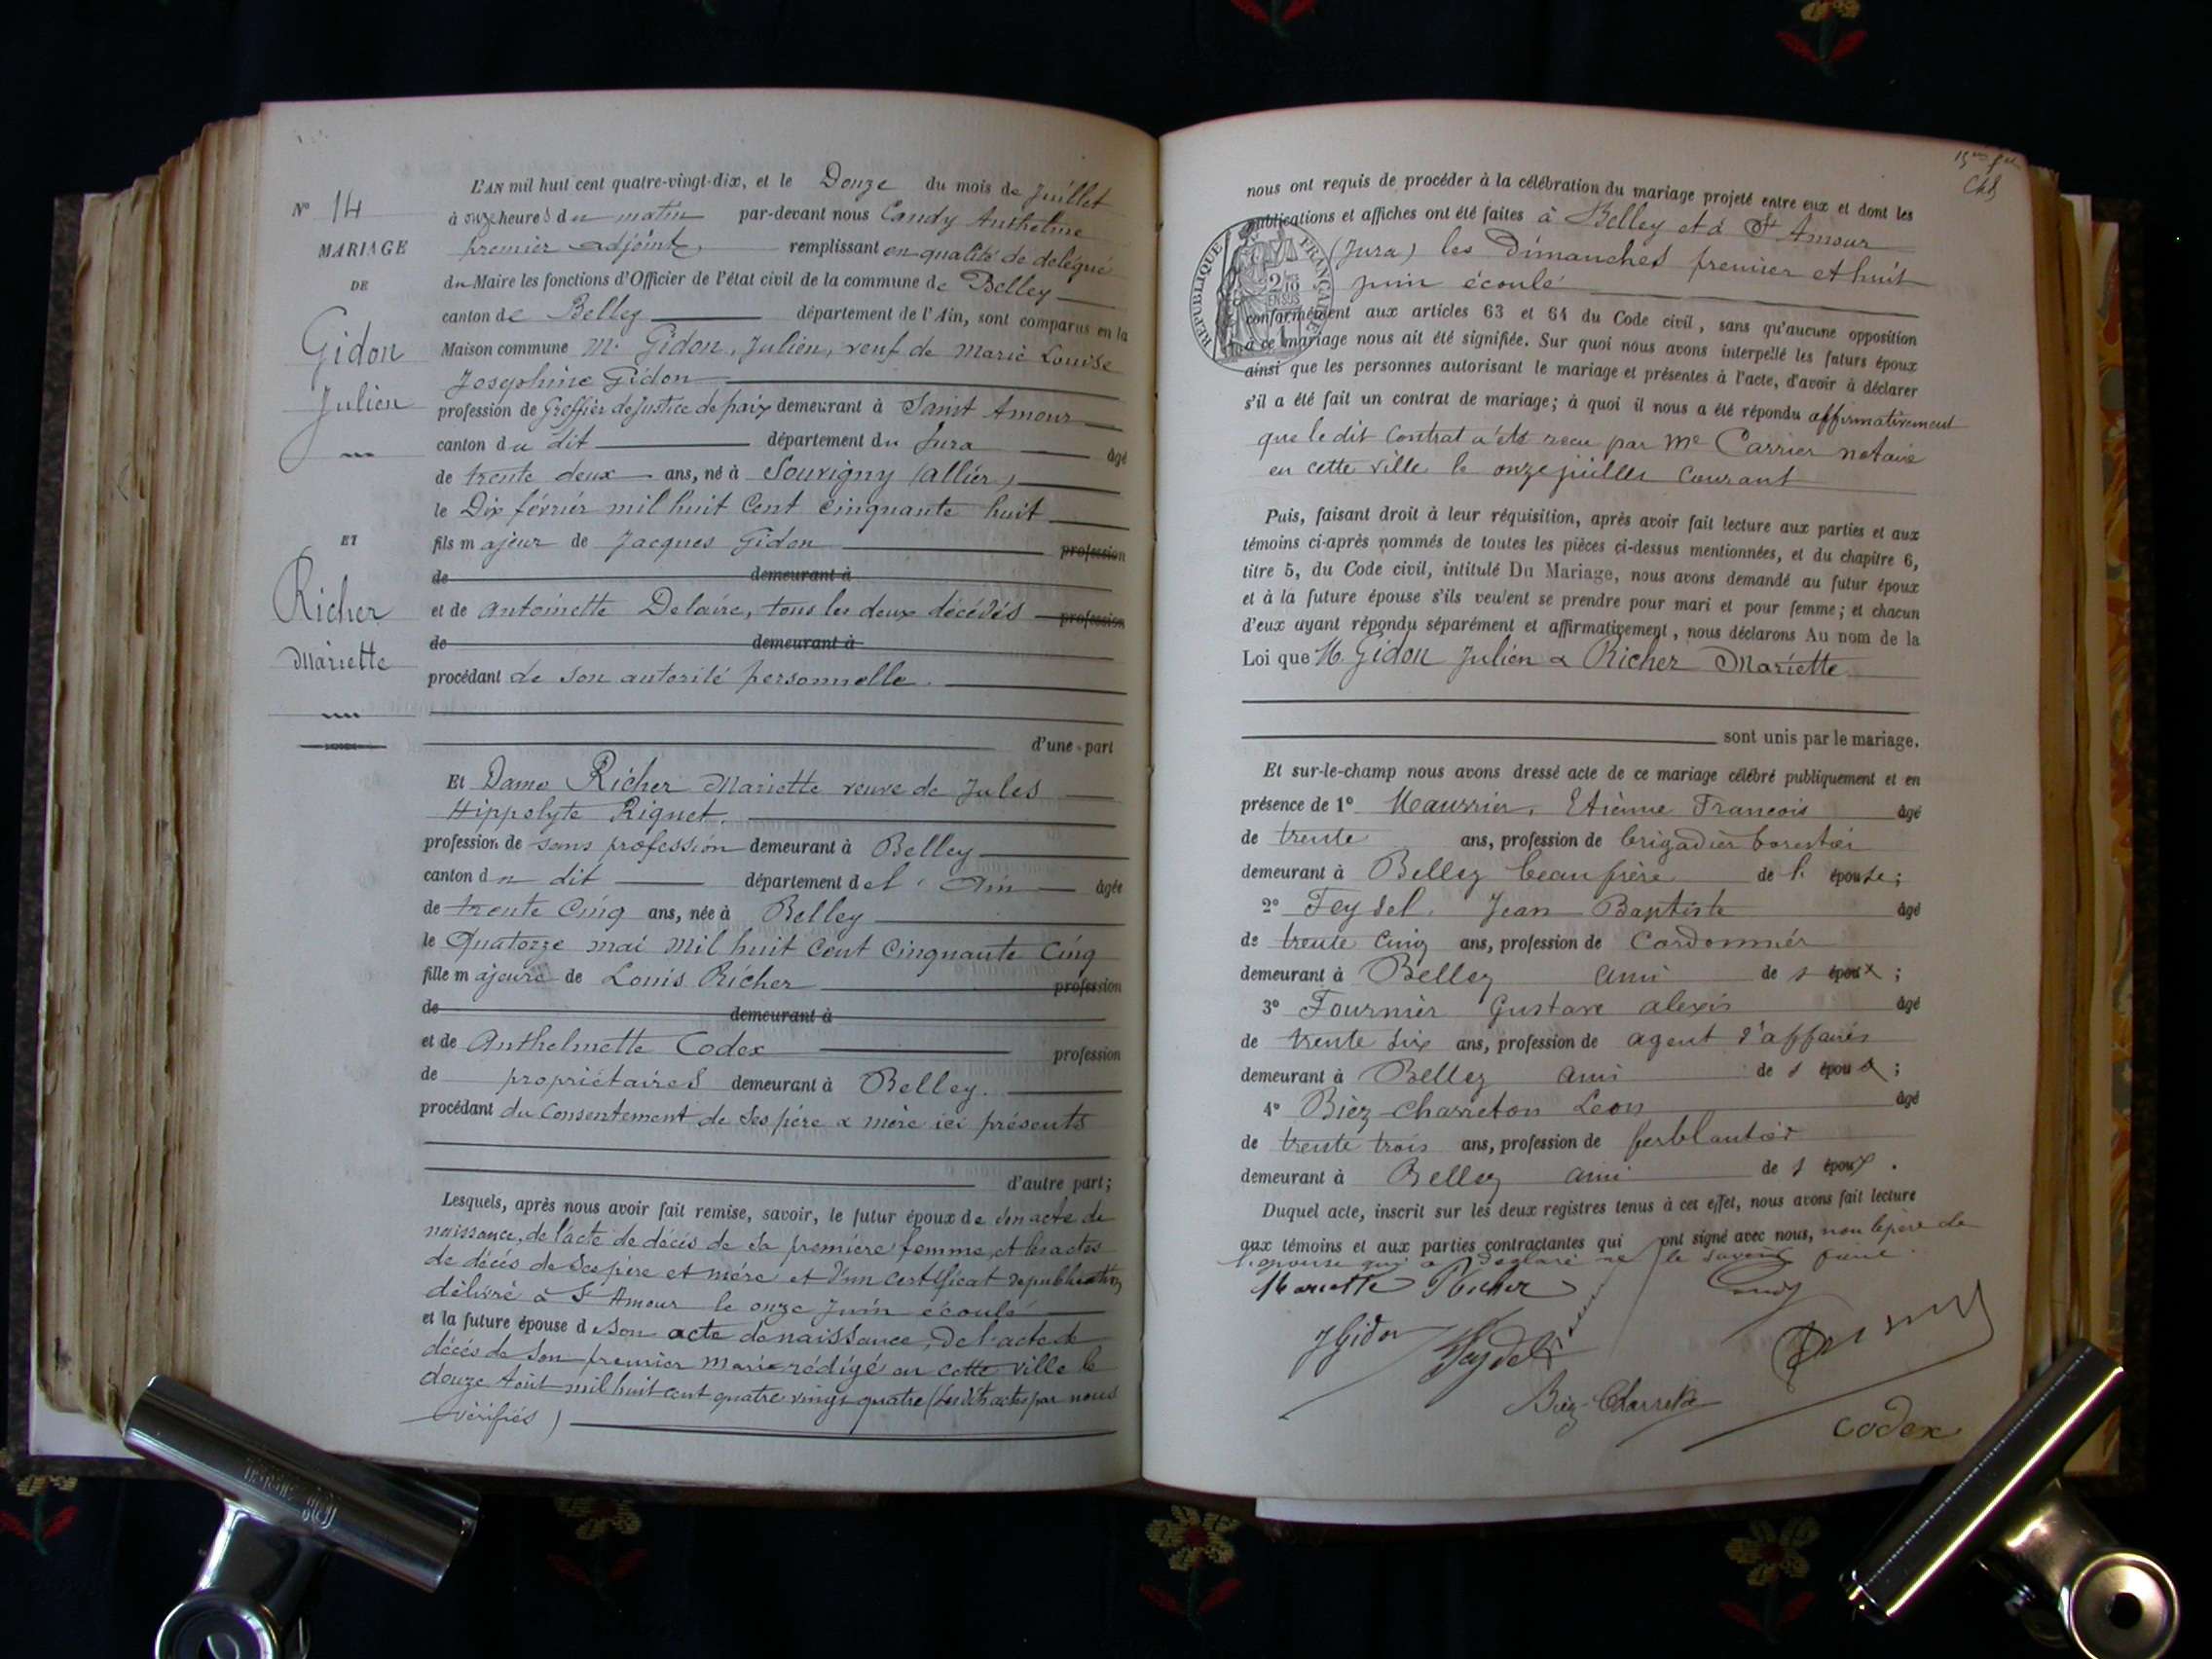 L'AN mil huit cent quatre-vingt-dix, et le Douze du mois de Juillet
à onze heures du matin par-devant nous Candy Anthelme
premier adjoint, remplissant en qualité de délégué
du Maire les fonctions d'Officier de l'état civil de la commune de Belley
canton de Belley département de l'Ain, sont comparus en la
Maison commune Mr Gidon, Julien, veuf de Marie Louise
Josephine Gidon
profession de Greffier de Justice de paix demeurant à Saint Amour
canton du dit département du Jura âgé
de trente deux ans, né à Souvigny (allier)
le Dix février mil huit Cent Cinquante huit
fils majeur de Jacques Gidon profession
de demeurant à
et de Antoinette Delaire, tous les deux décédés profession
de demeurant à
procédant de son autorité personnelle.
d'une part
Et Dame Richer Mariette veuve de Jules
Hippolyte Riquet.
profession de sans profession demeurant à Belley
canton du dit département de l'Ain âgée
de trente Cinq ans, née à Belley
le Quatorze mai mil huit Cent Cinquante Cinq
fille majeure de Louis Richer profession
de demeurant à
et de Anthelmette Codex profession
de propriétaires demeurant à Belley.
procédant du Consentement de Ses père & mère ici présents
d'autre part;
Lesquels, après nous avoir fait remise, savoir, le futur époux de son acte de
naissance, de l'acte de décès de sa première femme, et les actes
de décès de Ses père et mère et d'un certificat de publication
délivré à St Amour le onze Juin écoulé
et la future épouse de son acte de naissance, De l'acte de
décès de Son premier mari rédigé en cette ville le
douze Août mil huit cent quatre vingt quatre (Les dits actes par nous
vérifiés)
No 14
MARIAGE
DE
Gidon
Julien
ET
Richer
Mariette
nous ont requis de procéder à la célébration du mariage projeté entre eux et dont les
publications et affiches ont été faites à Belley et à St Amour
(Jura) les Dimanches premier et huit
juin écoulé
conformément aux articles 63 et 64 du Code civil, sans qu'aucune opposition
à ce mariage nous ait été signifiée. Sur quoi nous avons interpellé les futurs époux
ainsi que les personnes autorisant le mariage et présentes à l'acte, d'avoir à déclarer
s'il a été fait un contrat de mariage; à quoi il nous a été répondu affirmativement
que le dit Contrat a été recu par Me Carrier notaire
en cette ville le onze juillet Courant
Puis, faisant droit à leur réquisition, après avoir fait lecture aux parties et aux
témoins ci-après nommés de toutes les pièces ci-dessus mentionnées, et du chapitre 6,
titre 5, du Code civil, intitulé Du Mariage, nous avons demandé au futur époux
et à la future épouse s'ils veulent se prendre pour mari et pour femme; et chacun
d'eux ayant répondu séparément et affirmativement, nous déclarons Au nom de la
Loi que M. Gidon Julien & Richer Mariette
sont unis par le mariage.
Et sur-le-champ nous avons dressé acte de ce mariage célébré publiquement et en
présence de 1° Etienne Francois âgé
de trente ans, profession de brigadier forestier
demeurant à Belley beau frère de l' épouse;
2° Feydel. Jean Baptiste âgé
de trente Cinq ans, profession de Cordonnier
demeurant à Belley ami de s époux;
3° Fournier Gustave alexis âgé
de trente six ans, profession de agent d'affaires
demeurant à Belley ami de s époux;
4° Bièz-Charreton Leon âgé
de trente trois ans, profession de ferblantier
demeurant à Belley ami de s époux.
Duquel acte, inscrit sur les deux registres tenus à cet effet, nous avons fait lecture
aux témoins et aux parties contractantes qui ont signé avec nous, non le père de
l'épouse qui a déclaré ne le savoir faire.
Mariette Richer
JGidon Feydel
Bièz-Charreton
Codex
RÉPUBLIQUE FRANÇAISE